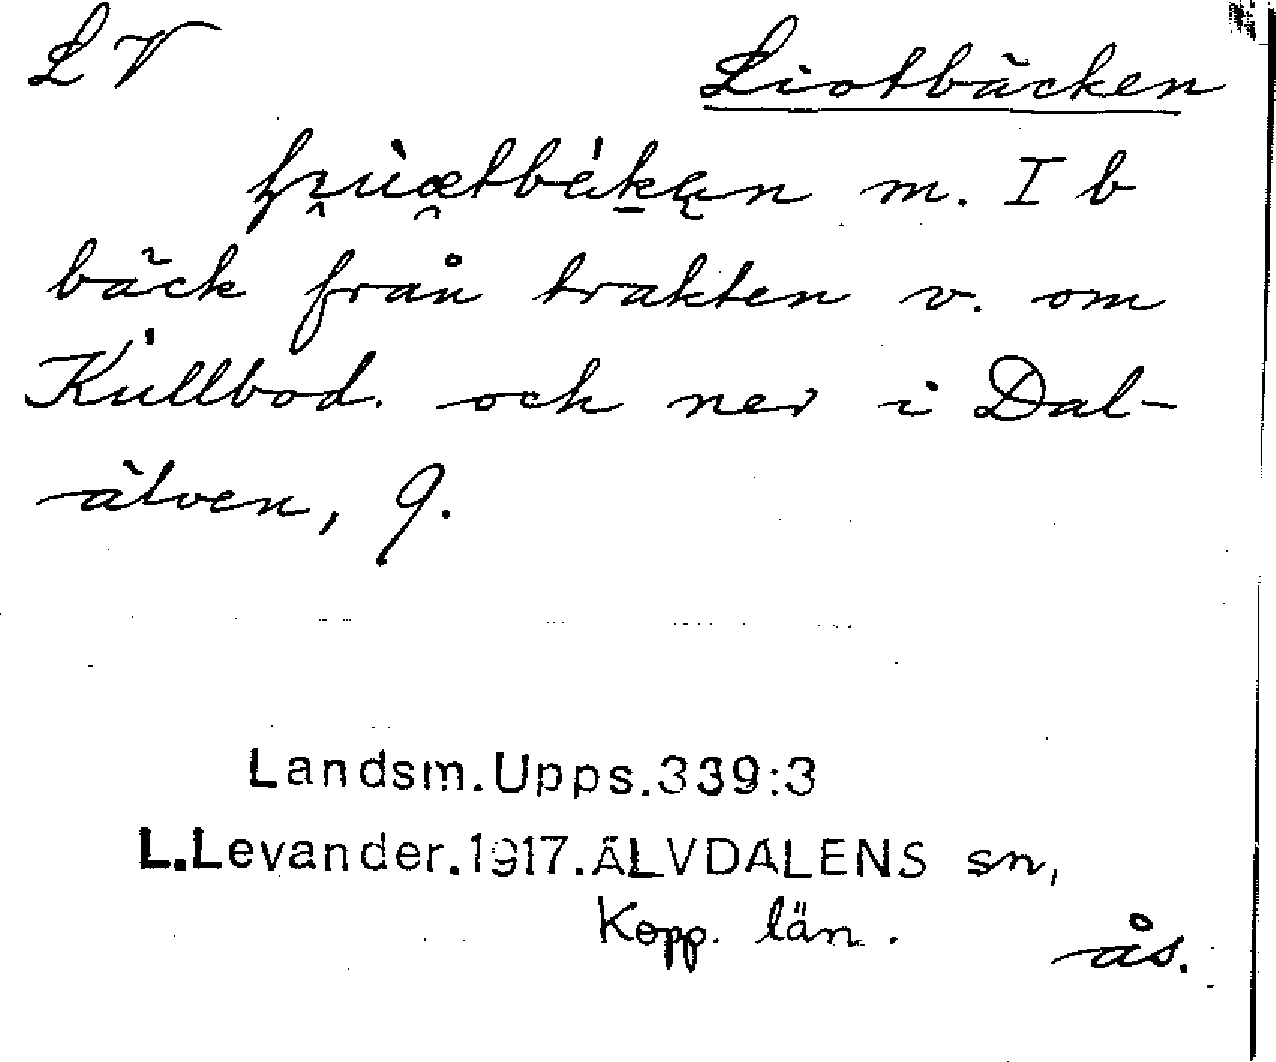 LV
Liotbäcken
m. I b
bäck från trakten v. om
Kullbod. och ner i Dal-
älven, 9.
Landsm.Upps.339:3
L.Levander.1917.ÄLVDALENS sn,
Kopp. län.
ås.